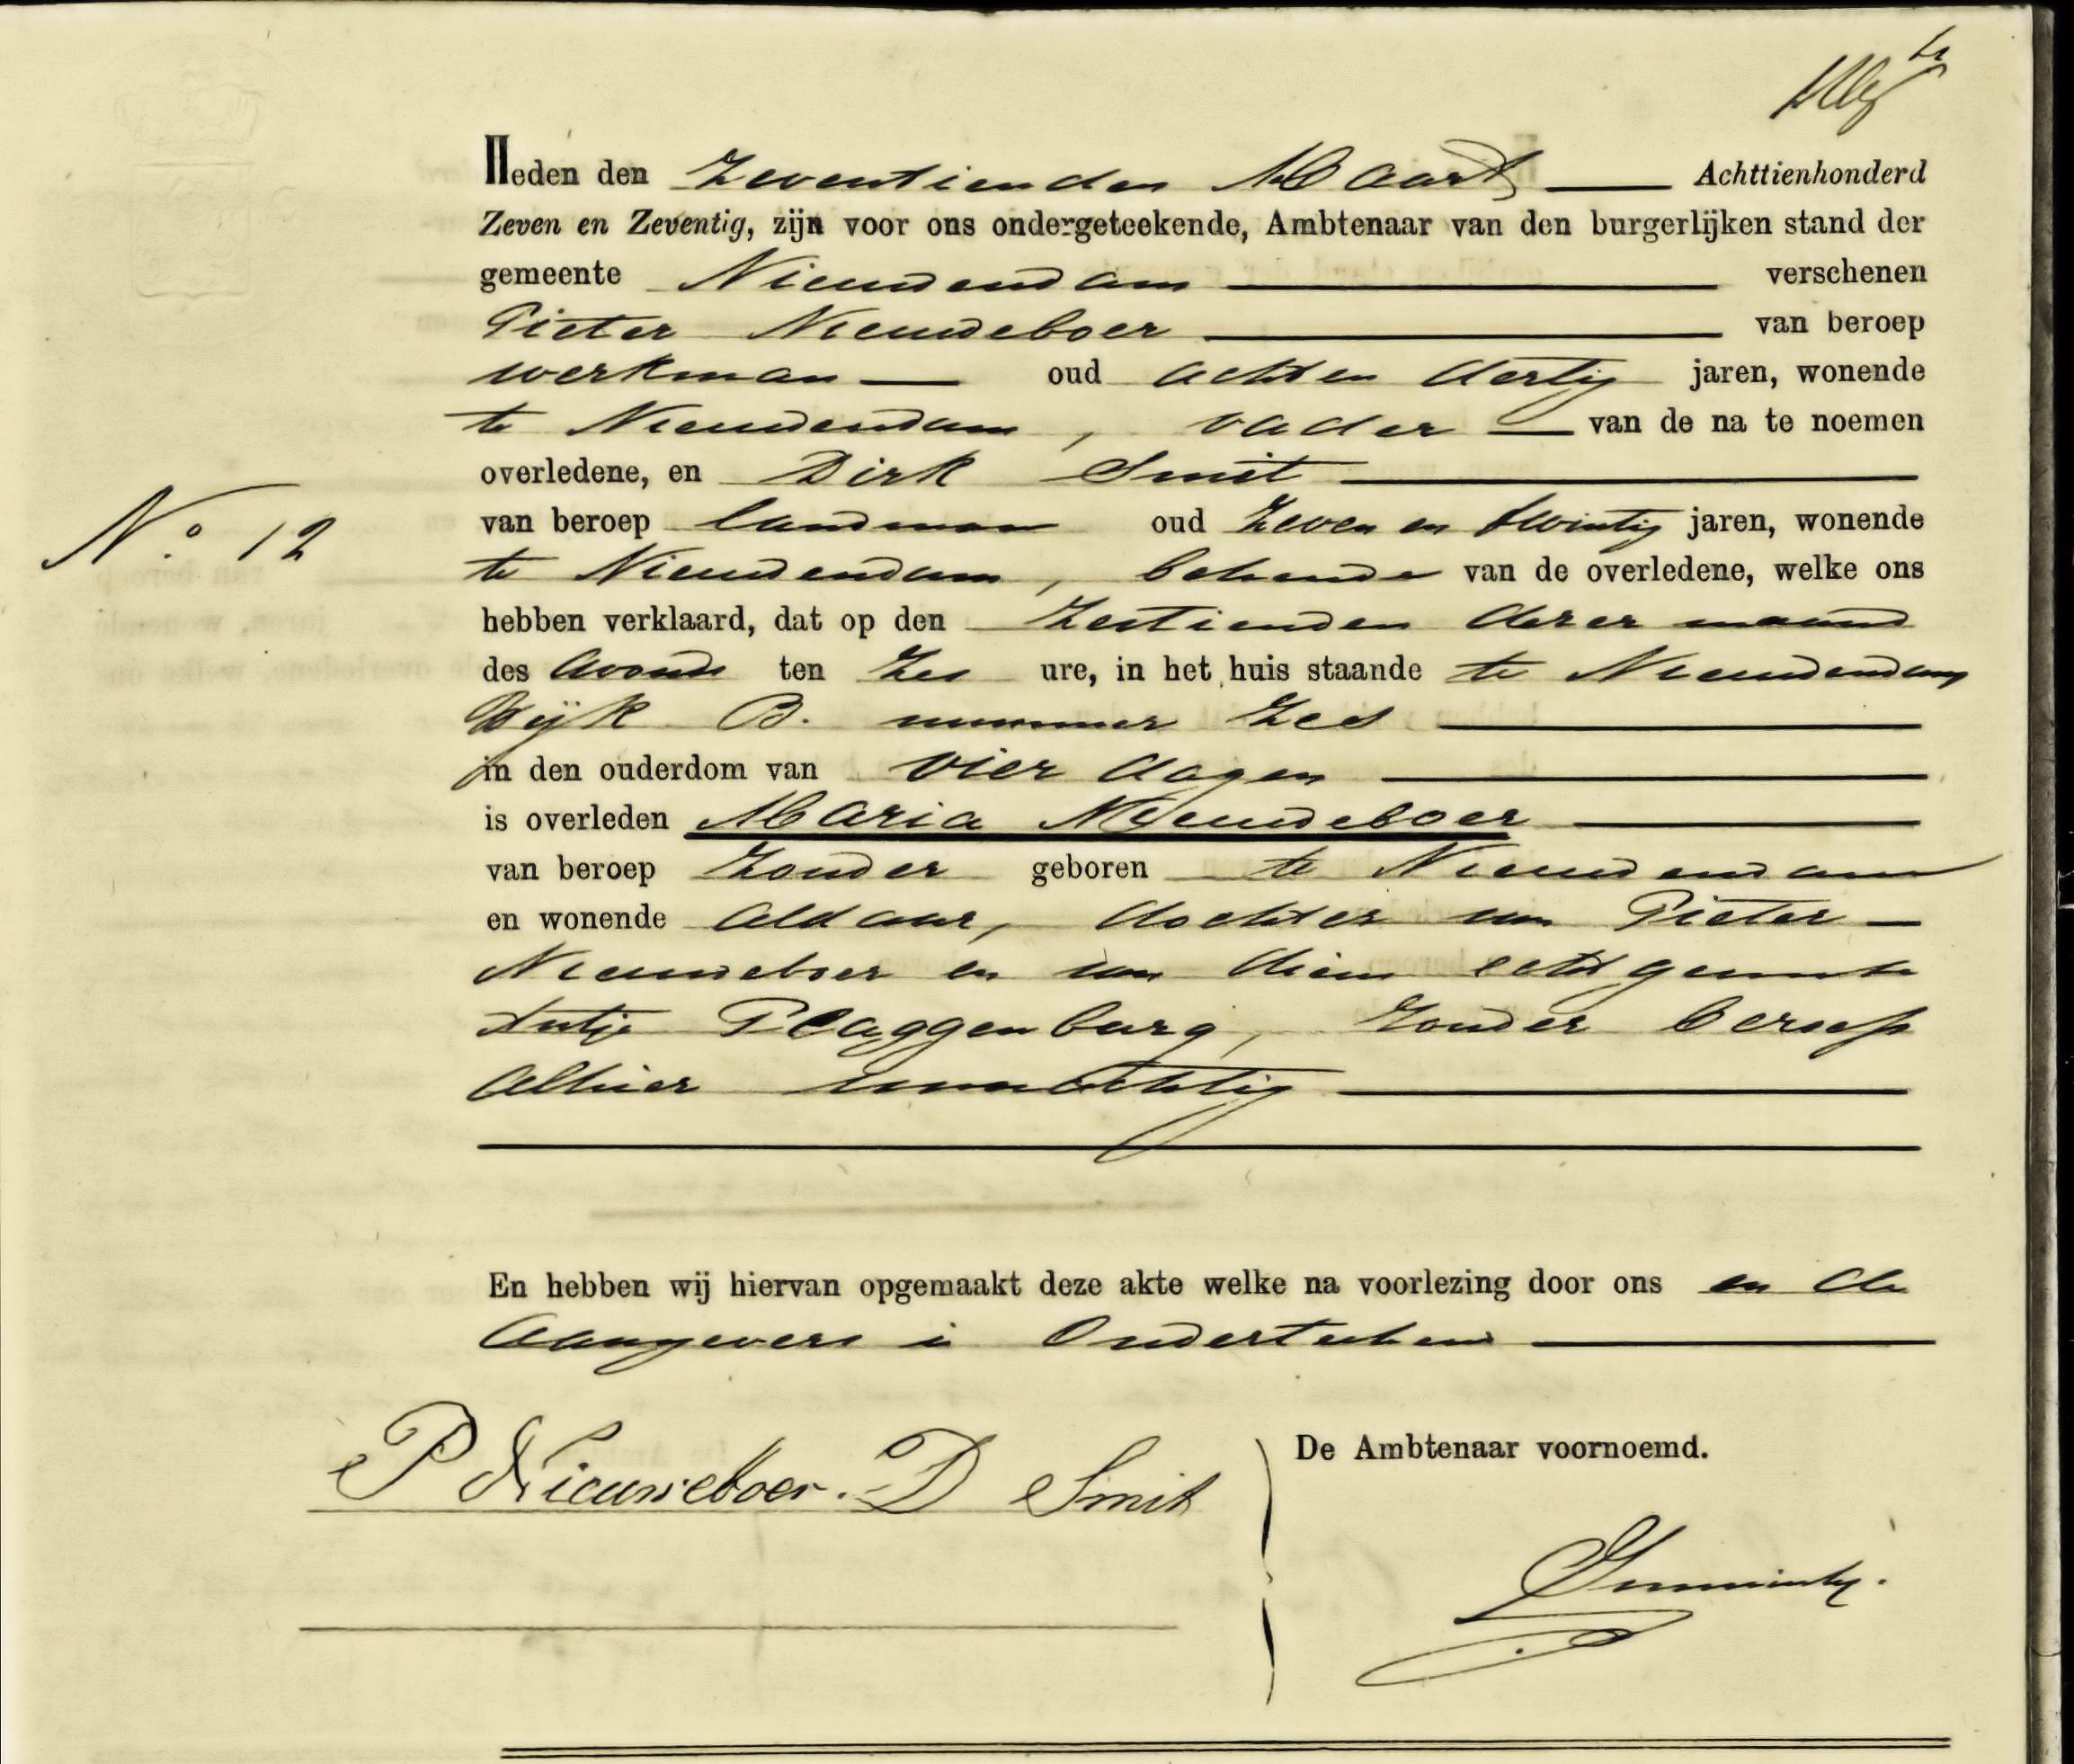 Heden den Zeventienden Maart Achttienhonderd
Zeven en Zeventig, zijn voor ons ondergeteekende, Ambtenaar van den burgerlijken stand der
gemeente Nieuwendam verschenen
Pieter Nieuweboer van beroep
werkman oud acht en dertig jaren, wonende
te Nieuwendam, vader van de na te noemen
overledene, en Dirk Smit
N.º 12
van beroep landman oud Zeven en twintig jaren, wonende
te Nieuwendam, bekende van de overledene, welke ons
hebben verklaard, dat op den Zestienden dezer maand
des avonds ten Zes ure, in het huis staande te Nieuwendam
Wijk B. nummer Zes
in den ouderdom van vier dagen
is overleden Maria Nieuweboer
van beroep Zonder geboren te Nieuwendam
en wonende aldaar, dochter van Pieter
Nieuweboer en van diens echtgenoote
Plaggenburg, Zonder beroep
alhier woonachtig
En hebben wij hiervan opgemaakt deze akte welke na voorlezing door ons en de
aangevers is Onderteekend
P Nieuweboer. D Smit
De Ambtenaar voornoemd.